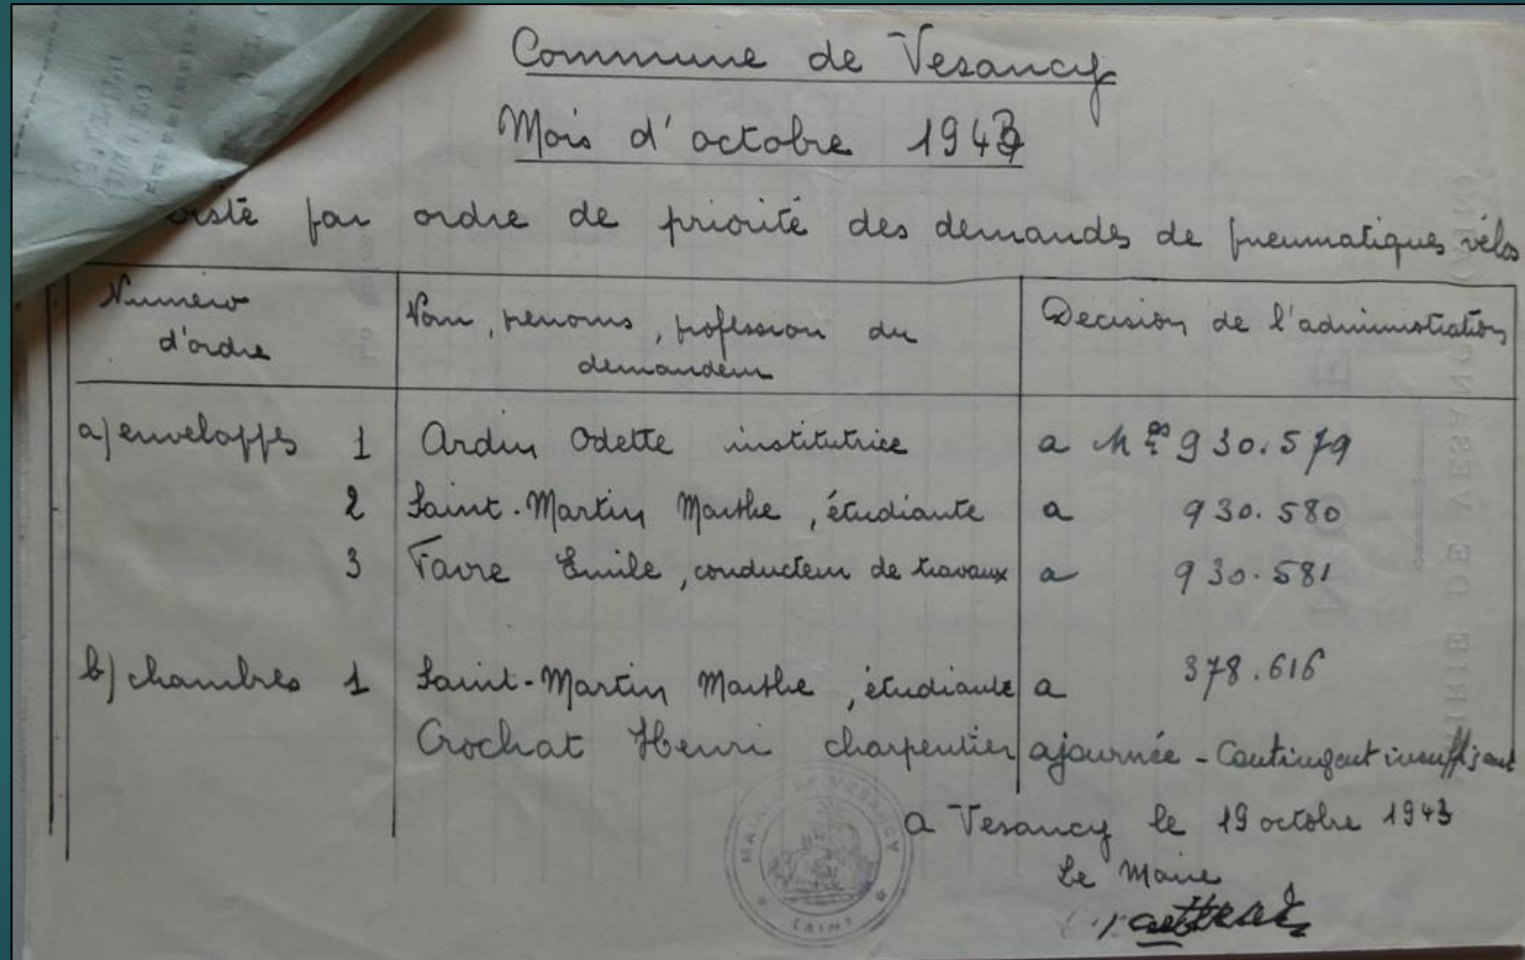 Commune de Vesancy
Mois d'octobre 1943
Liste par ordre de priorité des demandes de pneumatiques vélos
Numéro d'ordre
Nom, prénoms, profession du demandeur
Décision de l'administration
a) enveloppes 1 Ardin Odette institutrice a Nos 930.579
2 Saint-Martin Marthe, étudiante a 930.580
3 Favre Emile, conducteur de travaux a 930.581
b) chambres 1 Saint-Martin Marthe, étudiante a 378.616
Crochat Henri charpentier ajournée - Contingent insuffisant
a Vesancy le 19 octobre 1943
Le Maire
MAIRIE DE VESANCY
(AIN)